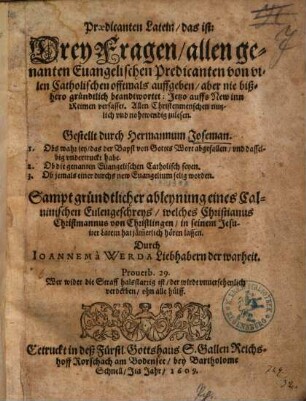 Prædicanten Latein/das ist:
Drey Fragen/allen ge-
nanten Euangelischen Predicanten von vi-
len Catholischen offtmals auffgeben/aber nie biß-
hero gründtlich beandtwortt: Jetzo auffs New inn
Reimen verfasset. Allen Christenmenschen nutz-
lich vnd nohtwendig zulesen.
Gestellt durch Hermannum Joseman.
1. Obs wahr sey/das der Bapst von Gottes Wort abgefallen/vnd dassel-
big vndertruckt habe.
2. Ob die genanten Euangelischen Catholisch seyen.
3. Ob jemals einer durchs new Euangelium selig worden.
Sampt gründtlicher ableynung eines Cal-
uinischen Eulengeschreys/welches Christianus
Christmannus von Christlingen/in seinem Jesui-
ter latein hören laßen.
Durch
IOANNEM à WERDA Liebhabern der warheit.
Prouerb. 29.
Wer wider die Straff halsstarrig ist/der wirdt vnuersehenlich
verderben/ohn alle hülff.
Getruckt in deß Fürstl. Gottshauß S. Gallen Reichs-
hoff Rorschach am Bodensee/bey Bartholome
Schnell/Im Jahr/1609.